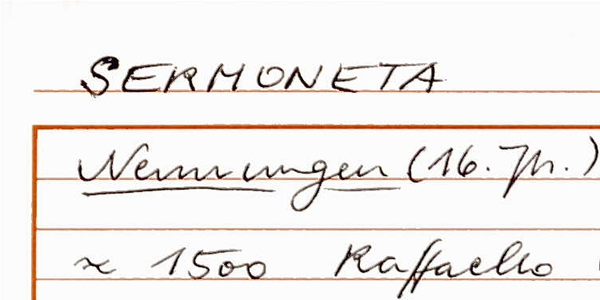 SERMONETA
Nennungen (16. Jh.)
~ 1500 Raffaello